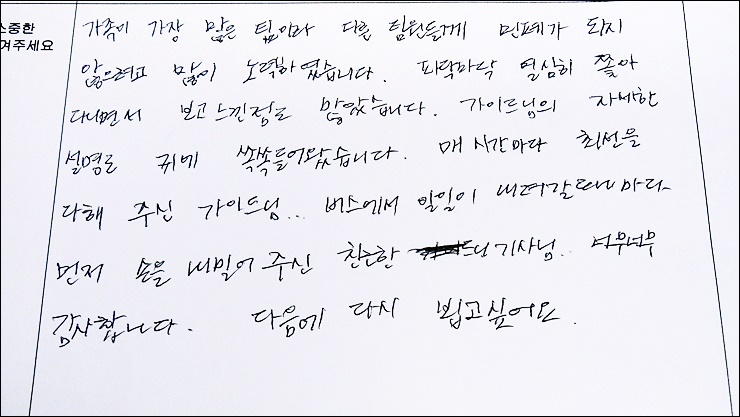 소중한
겨주세요
가족이 가장 많은 팀이라 다른 팀원들께 민폐가 되지
않으려고 많이 노력하였습니다. 파닥파닥 열심히 쫓아
다니면서 보고 느낀점도 많았습니다. 가이드님의 자세한
설명도 귀에 쏙쏙들어왔습니다. 매 시간마다 최선을
다해 주신 가이드님... 버스에서 일일이 내려갈때마다
먼저 손을 내밀어 주신 친근한 기사님.. 너무너무
감사합니다. 다음에 다시 뵙고싶어요.